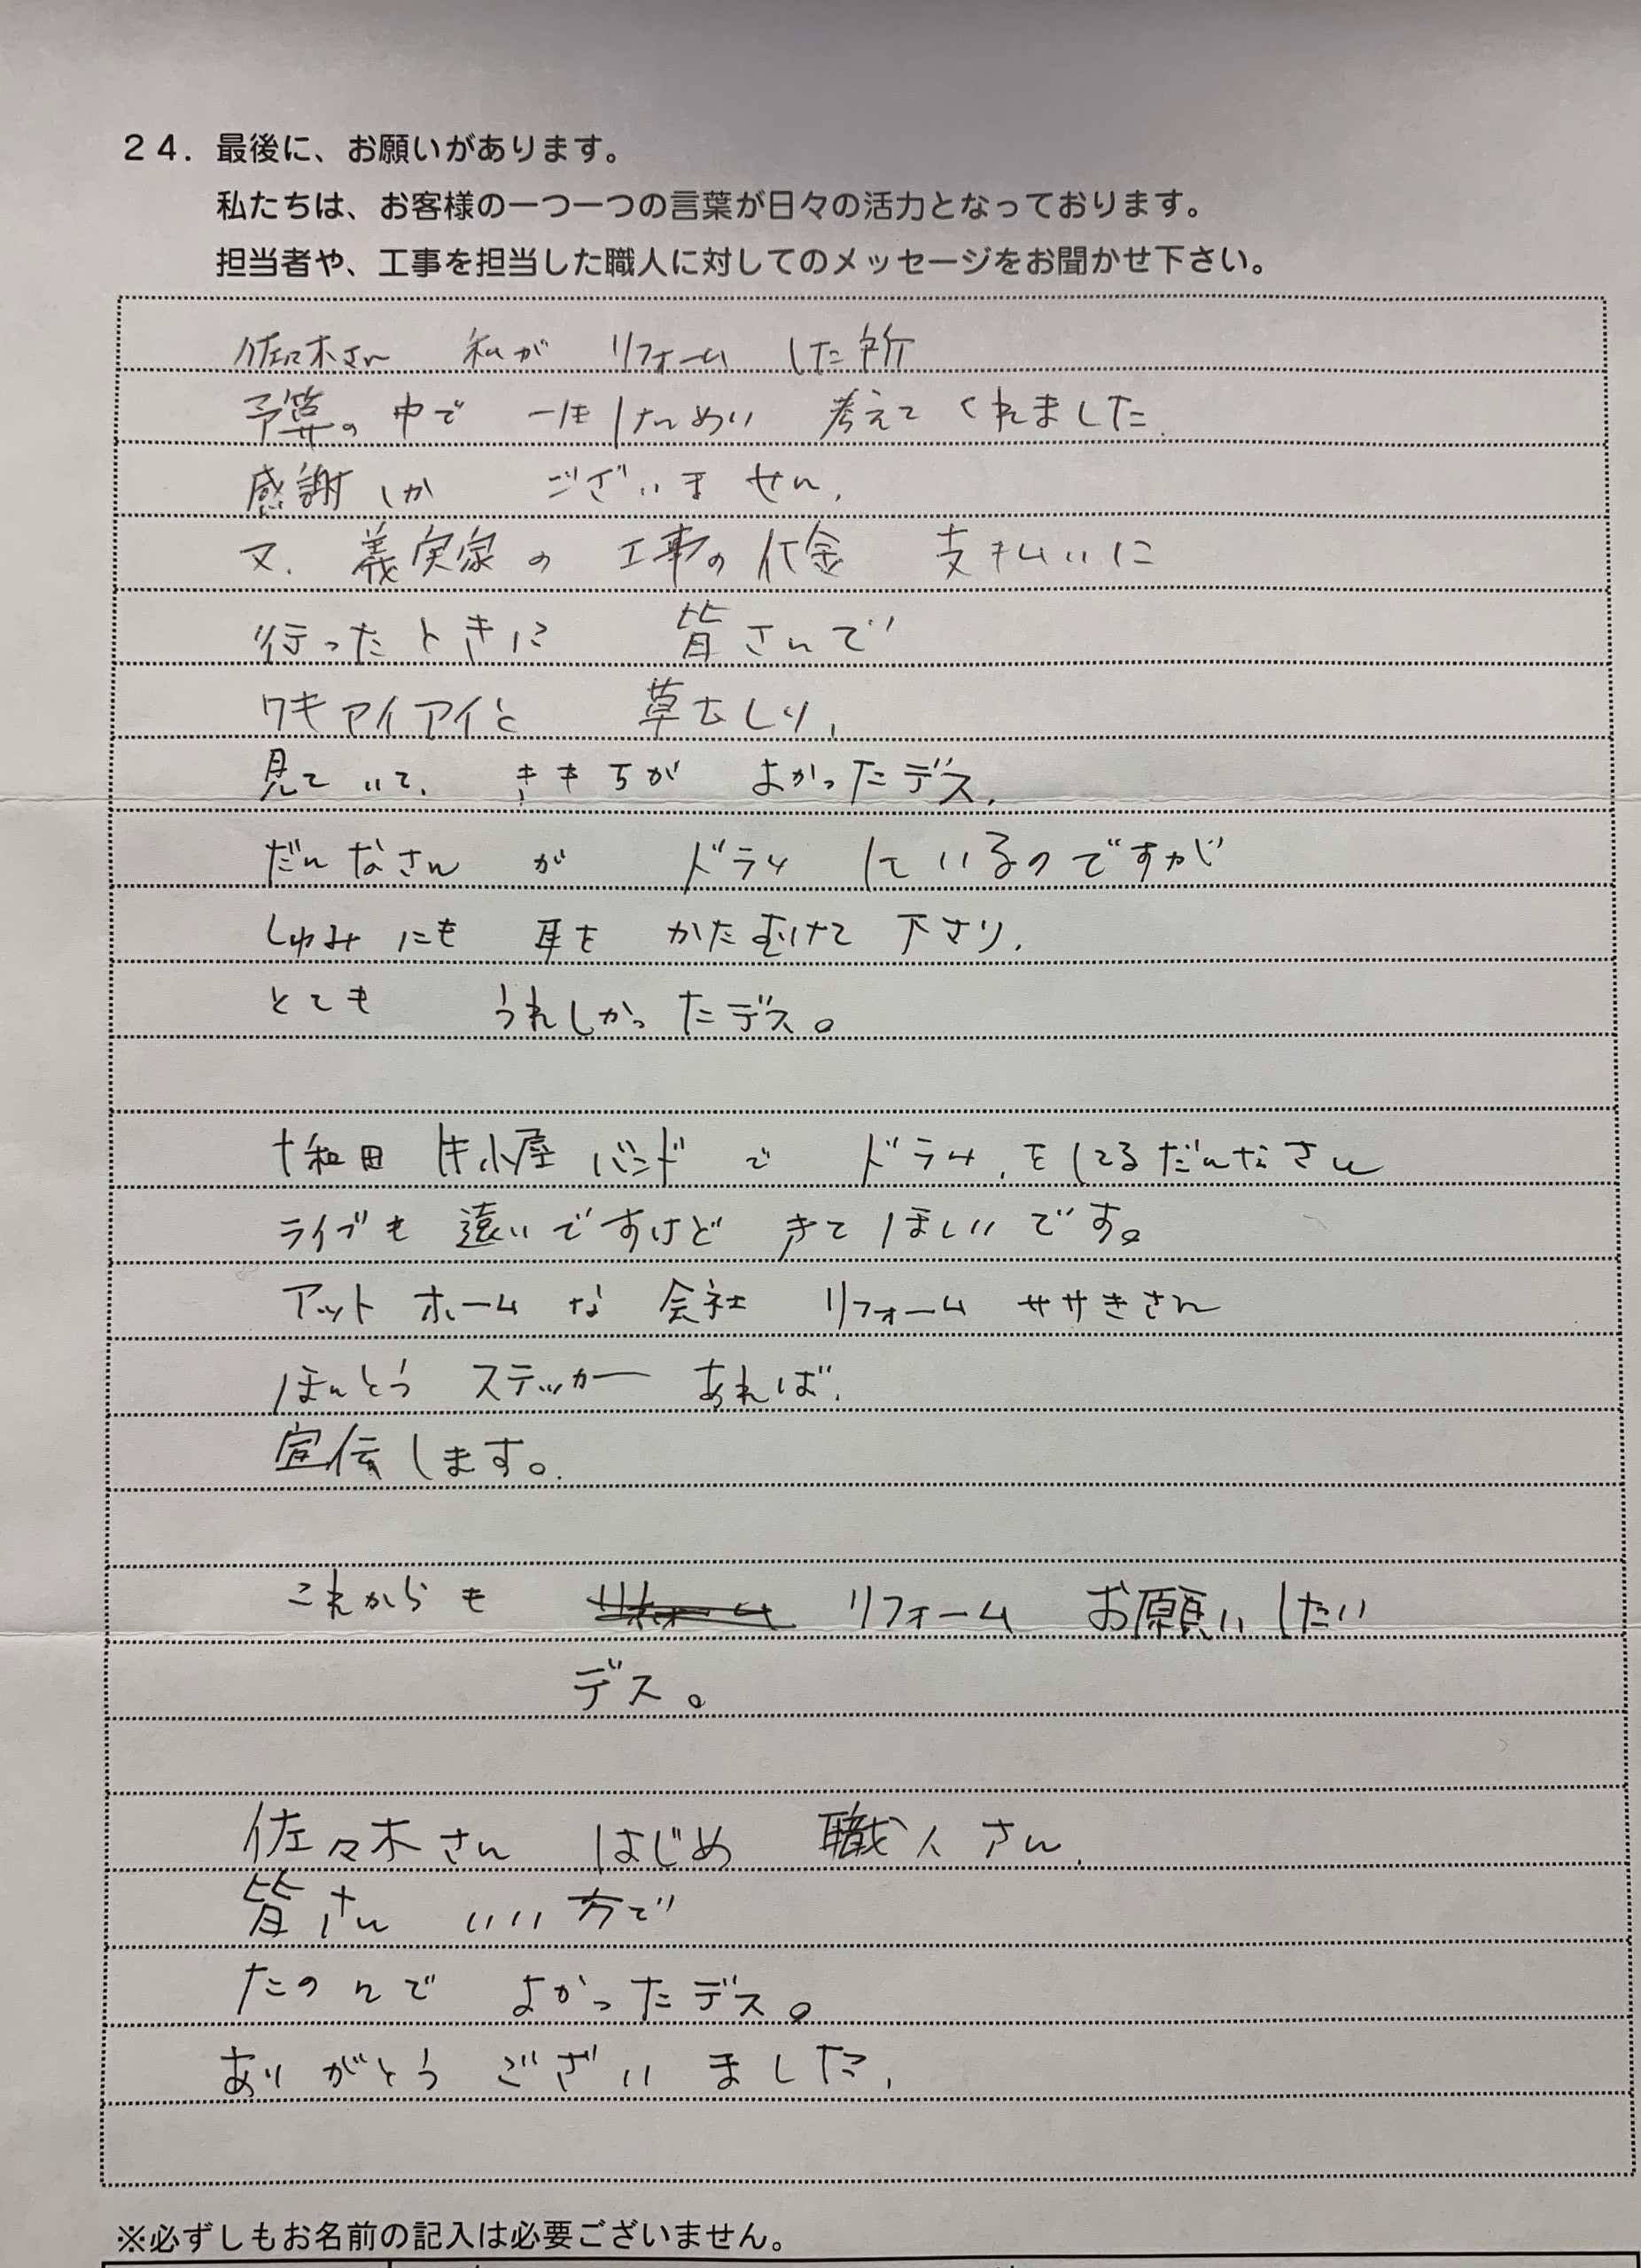 24．最後に、お願いがあります。
私たちは、お客様の一つ一つの言葉が日々の活力となっております。
担当者や、工事を担当した職人に対してのメッセージをお聞かせ下さい。
佐々木さん 私が リフォーム した所
予算の 中で 一生けんめい 考えて くれました.
感謝しか ございません.
又. 義実家の 工事の代金 支払いに
行ったときに 皆さんで
ワキアイアイと 草むしり,
見ていて. きもちが よかったデス.
だんなさん が ドラム しているのですが
しゅみにも 耳を かたむけて 下さり.
とても うれしかったデス。
十和田 牛小屋 バンド で ドラム.をしてるだんなさん
ライブも 遠いですけど きてほしいです。
アットホーム な 会社 リフォーム ササきさん
ほんとう ステッカー あれば.
宣伝します。.
これからも リフォーム お願いしたい
デス。
佐々木さん はじめ 職人さん.
皆さん いい方で
たのんで よかったデス。
ありがとう ございました.
※必ずしもお名前の記入は必要ございません。